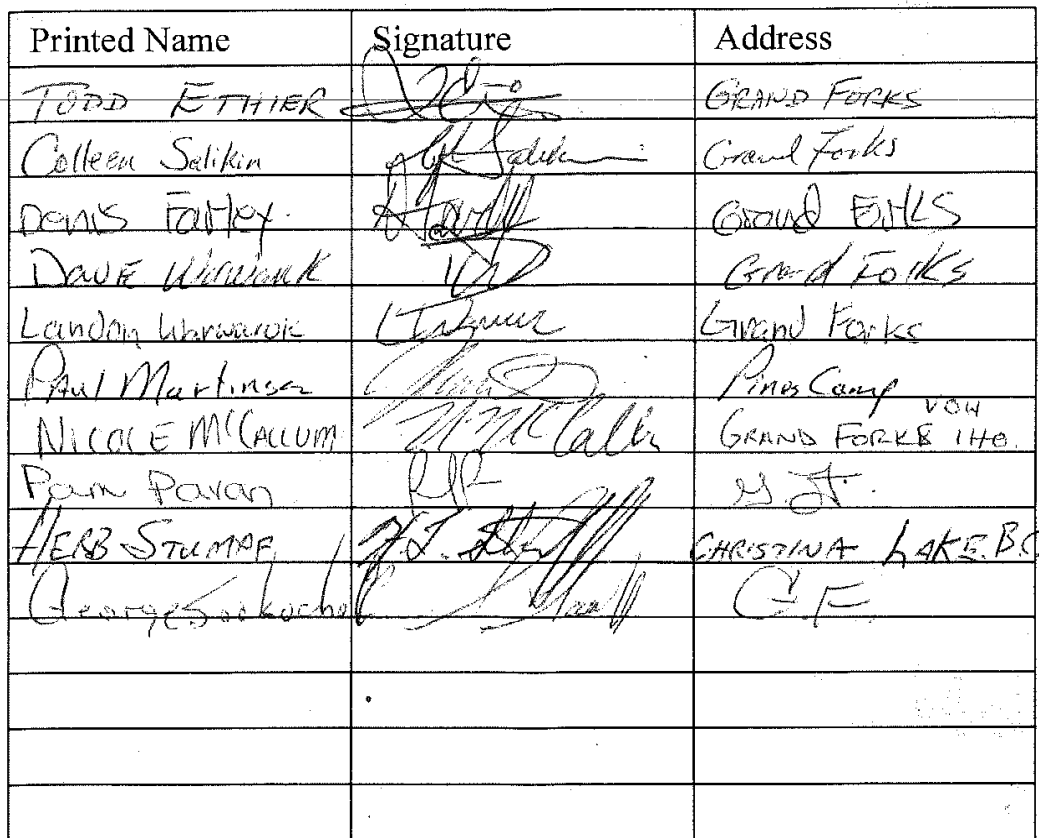 Printed Name Signature Address
TODD ETHIER GRAND FORKS
Colleen Salikin Grand Forks
DENIS Farley. Grand Forks
DAVE Grand Forks
Landon Warwaruk Grand Forks
PAUL Martinsen Pines Camp
NICOLE McCALLUM N McCallum GRAND FORKS V0H 1H0.
Pam Pavan G.F.
HERB STUMPF H.L. CHRISTINA LAKE. B.C
George G.F.